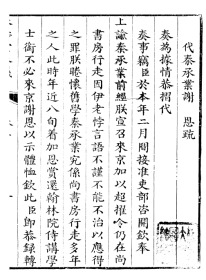 代秦承業謝　恩疏
奏為據情恭摺代
奏事竊臣於本年二月間接准吏部咨開欽奉
上諭秦承業前經朕宣召來京加以超擢令仍在尚
書房行走因伊老悖言語不謹不能不治以應得
之罪朕睠懷舊學秦承業究係尚書房行走多年
之人此時年近八旬着加恩賞還翰林院侍講學
士銜不必來京謝恩以示體恤欽此臣即恭錄轉